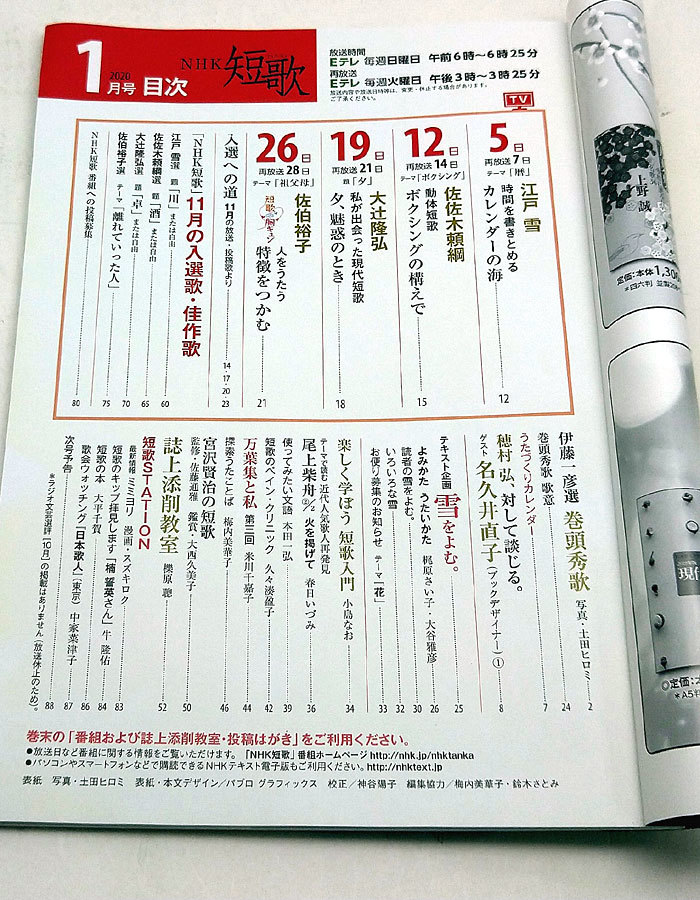 1
2020
月号 目次
NHK 短歌
放送時間
Eテレ 毎週日曜日 午前6時〜6時25分
再放送
Eテレ 毎週火曜日 午後3時〜3時25分
放送内容や放送日時等は、変更・休止する場合があります。
ご了承ください。
TV
5日
再放送7日
テーマ「暦」
江戸 雪
時間を書きとめる
カレンダーの海 12
12日
再放送14日
テーマ「ボクシング」
佐佐木頼綱
動体短歌
ボクシングの構えで 15
19日
再放送21日
題「夕」
大辻隆弘
私が出会った現代短歌
夕、魅惑のとき 18
26日
再放送28日
テーマ「祖父母」
佐伯裕子
短歌de胸キュン
人をうたう
特徴をつかむ 21
入選への道 11月の放送・投稿歌より 14・17・20 23
「NHK短歌」11月の入選歌・佳作歌
江戸 雪選 題「川」または自由 60
佐佐木頼綱選 題「酒」または自由 65
大辻隆弘選 題「卓」または自由 70
佐伯裕子選 テーマ「離れていった人」 75
NHK短歌 番組への投稿募集 80
伊藤一彦選 巻頭秀歌 写真・土田ヒロミ 2
巻頭秀歌 歌意 24
うたづくりカレンダー 7
穂村 弘、対して談じる。
ゲスト 名久井直子(ブックデザイナー)① 8
テキスト企画 雪をよむ。
よみかた うたいかた 梶原さい子・大谷雅彦 25
読者の雪をよむ。 26
いろいろな雪 30
お便り募集のお知らせ テーマ「花」 32
33
楽しく学ぼう 短歌入門 小島なお 34
テーマで読む 近代人気歌人再発見
尾上柴舟② 火を掲げて 春日いづみ 36
使ってみたい文語 本田一弘 39
短歌のペイン・クリニック 久々湊盈子 42
万葉集と私 第三回 米川千嘉子 44
探索うたことば 梅内美華子 46
宮沢賢治の短歌
監修・佐藤通雅 鑑賞・大西久美子 50
誌上添削教室 櫟原 聰 52
短歌STATION
最新情報 ミミヨリ 漫画・スズキロク 83
短歌のキップ拝見します「楠 誓英さん」牛 隆佑 84
短歌の本 大平千賀 85
歌会ウォッチング「日本歌人」(東京) 中家菜津子 86
次号予告 87
88
＊ラジオ文芸選評「10月」の掲載はありません(放送休止のため)。
巻末の「番組および誌上添削教室・投稿はがき」をご利用ください。
●放送日など番組に関する情報をご覧いただけます。「NHK短歌」番組ホームページ http://nhk.jp/nhktanka
●パソコンやスマートフォンなどで購読できるNHKテキスト電子版もご利用ください。http://nhktext.jp
表紙 写真・土田ヒロミ 表紙・本文デザイン/パブロ グラフィックス 校正/神谷陽子 編集協力/梅内美華子・鈴木さとみ
上野 誠
定価：本体1,30
＊四六判 並製
現
◎定価：
＊A5